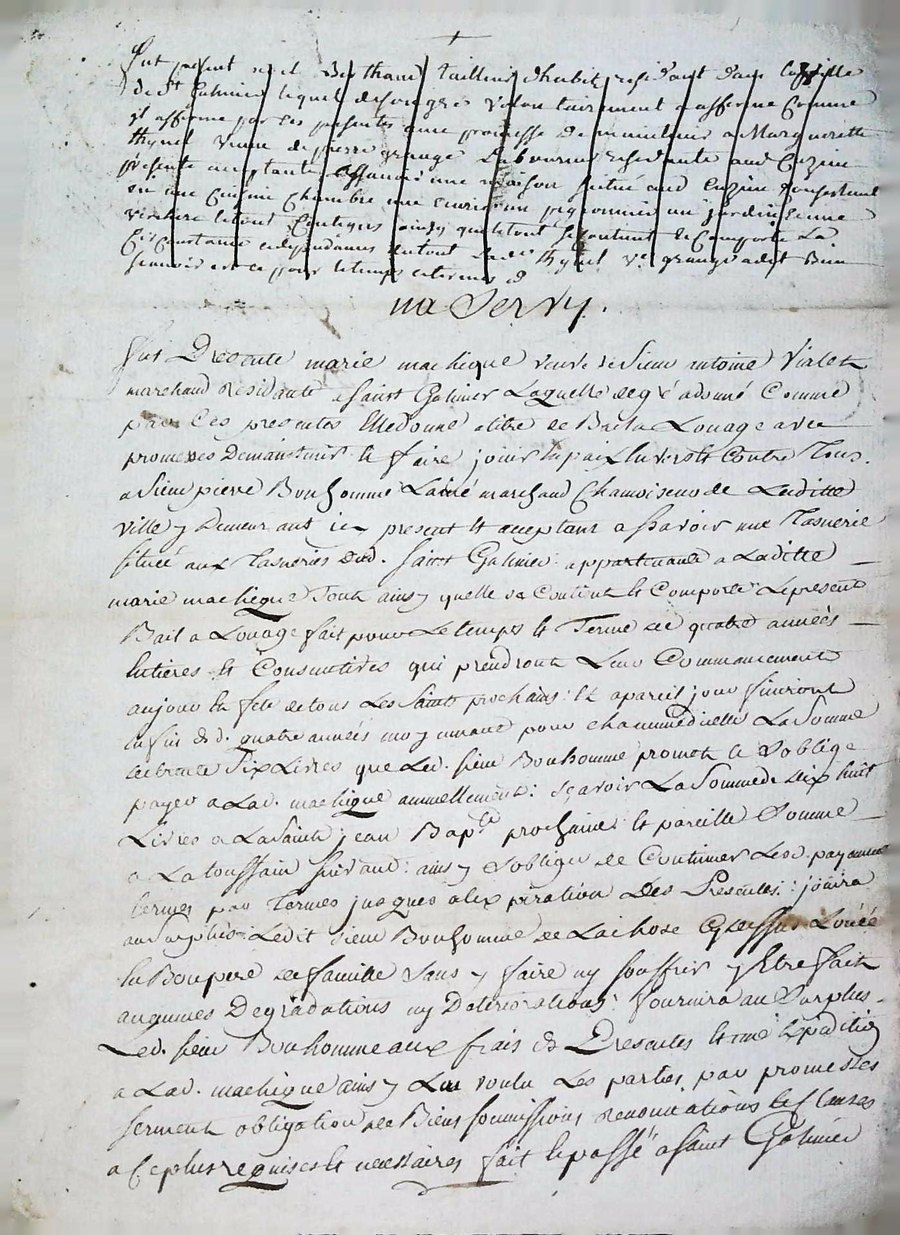 fut present noel Berthaud tailleur d'habit residant dans la ville
de St Galmier lequel de son gré volontairement a afferme comme
il afferme par ces presentes avec promesse de maintenir a Marguerite
thynel veuve de pierre grange Laboureur residante aud Cuzieu
présente acceptante assavoir une maison situé aud Cuzieu Consistant
en une Cuisine Chambre une Ecurie un pigeonnier un jardin Et une
verchere le tout Contigus ainsy que le tout se contient Et Comporte La
Circonstance et dependances du tout Ladte thynel Ve grange a dit Bien
scavoir et ce pour le temps et terme d
na Servy.
fut Presente marie machique veuve de Sieur antoine Vialet
marchand Residante a Saint Galmier Laquelle de gré adonné Comme
par Ces presentes Elle donne a titre de Bail a Louage avec
promesses De maintenir Et faire jouir En paix Envers Et Contre Tous.
a Sieur pierre Bonhomme Lainé marchand Chamoiseur de Laditte
ville y Demeurant icy present Et acceptant a Savoir une Tasnerie
située aux Tasneries dud. Saint Galmier appartenante a Laditte
marie machique Tout ainsy quelle se Contient Et Comporte Le present
Bail a Louage fait pour Le temps Et Terme de quatre années
Entieres Et Consecutives qui prendront Leur Commancement
aujour Et fete de tous Les Saints prochains Et apareil jour finiront
La fin Desd. quatre années moyennant pour chacune dicelles La Somme
de trente Six Livres que Led. sieur Bonhomme promet Et Soblige
payer a Lad. machique annuellement : Sçavoir La Somme de dix huit
Livres a La Saint jean Bapte prochaine Et pareille Somme
a La toussain suivant : ainsy Soblige de Continuer Lesd. payements
termes par Termes jusques alexpiration Des Presentes : jouira
au Surplus Ledit Sieur Bonhomme de La chose Cy dessus Louée
En Bon pere de famille Sans y faire ny souffrir y Etre fait
aucunes Degradations ny Deteriorations : fournira au Surplus
Led. sieur Bonhomme aux frais des Presentes Et une Expedition
a Lad. machique ainsy Lont voulu Les parties, par promesses
serment obligation de Biens soumissions Renonciations Et Clauses
a Ce plus requises Et necessaires fait Et passé a Saint Galmier